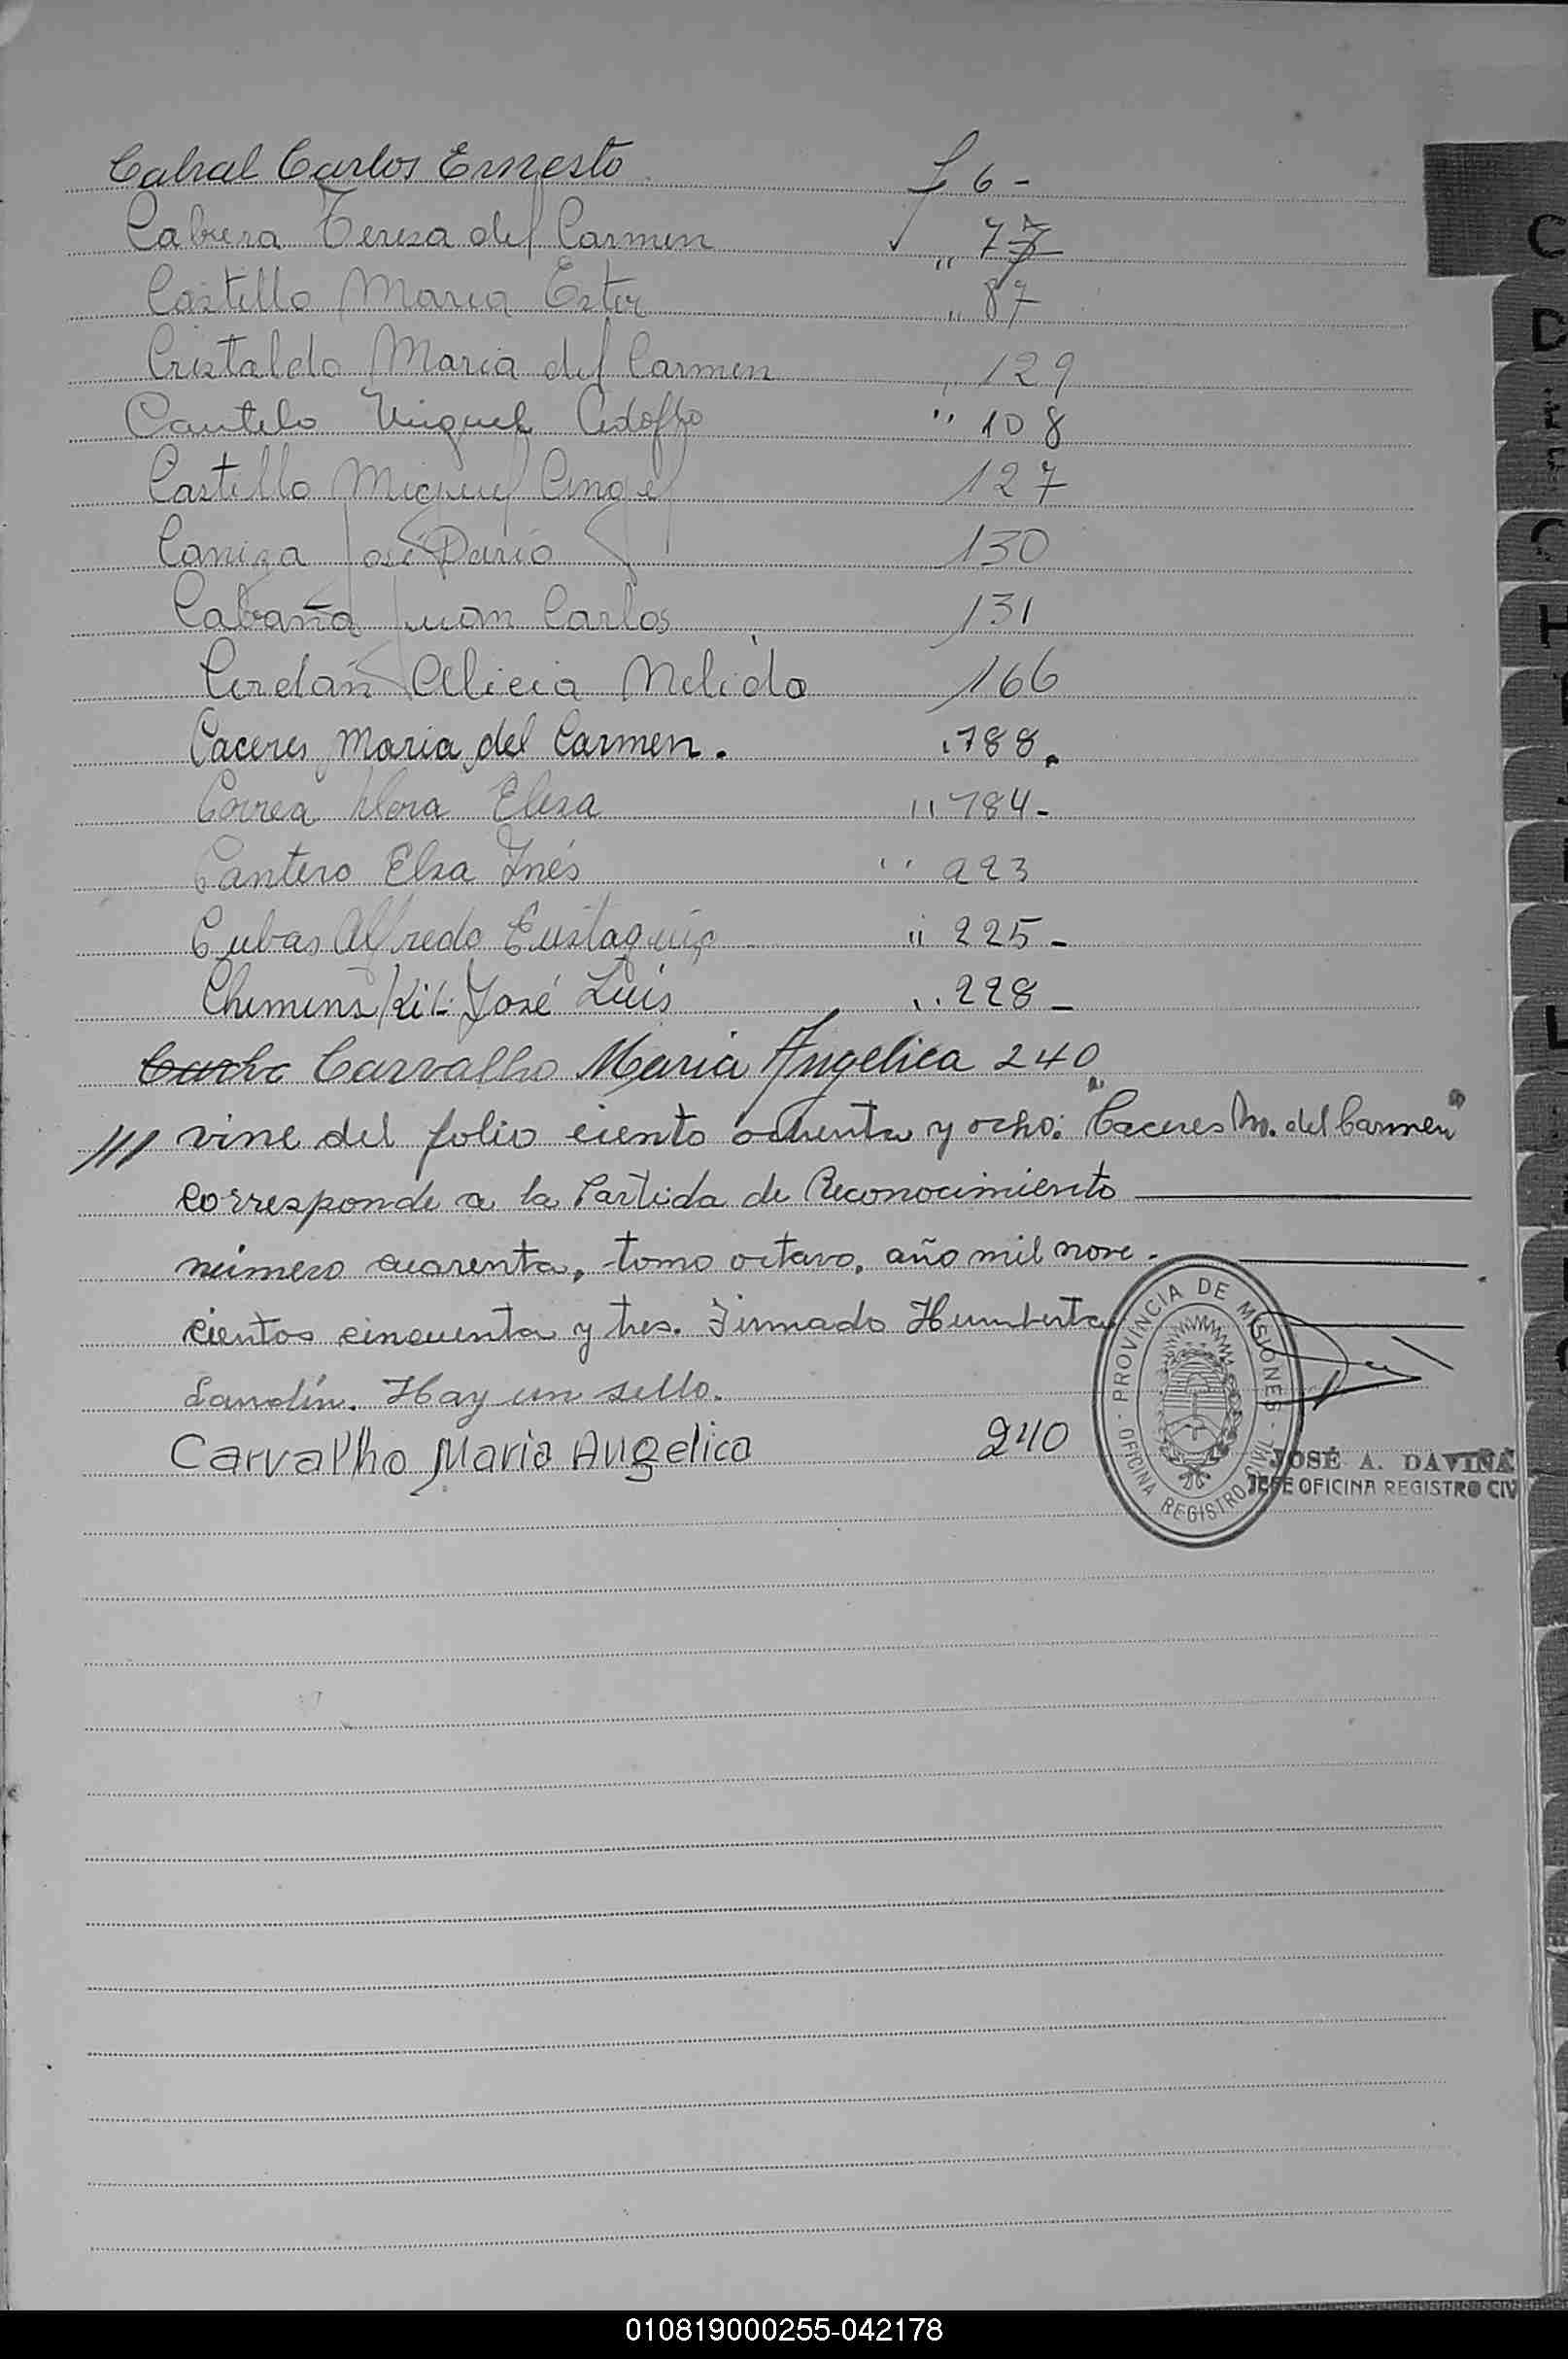 Cabral Carlos Ernesto f 6 -
Cabrera Teresa del Carmen " 77
Castillo Maria Ester " 87
Cristaldo Maria del Carmen " 129
Cantelo Miguel Adolfo " 108
Castillo Miguel Angel 127
Caniza José Dario 130
Cabaña Juan Carlos 131
Cerdán Alicia Melida 166
Caceres Maria del Carmen. " 188.
Correa Elesa " 184-
Cantero Elsa Inés " 223
Cubas Alfredo Eustaquio " 225 -
Chemenski José Luis " 228 -
Carvalho Maria Angelica 240
/// vine del folio ciento ochenta y ocho: "Caceres M. del Carmen"
corresponde a la Partida de Reconocimiento
número cuarenta, tomo octavo, año mil nove-
cientos cincuenta y tres. Firmado Humberta
Landín. Hay un sello.
Carvalho Maria Angelica 240
PROVINCIA DE MISIONES
OFICINA REGISTRO CIVIL
JOSÉ A. DAVIÑA
JEFE OFICINA REGISTRO CIV
C
D
H
L
010819000255-042178